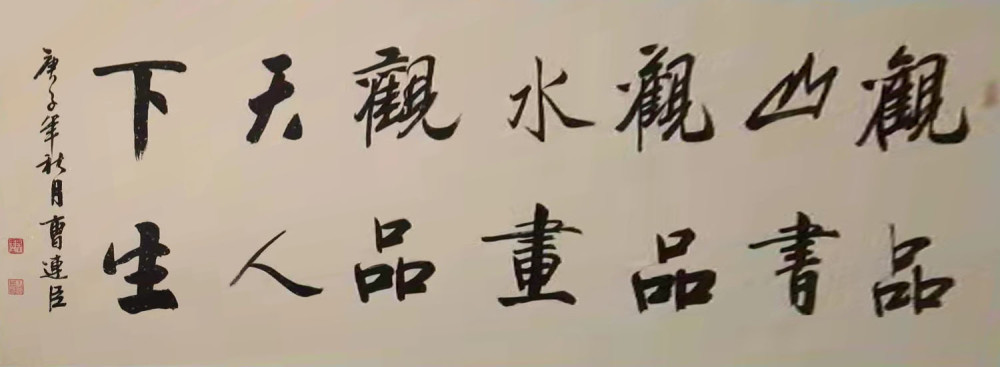 觀山觀水觀天下
品書品畫品人生
庚子年秋月曹連臣